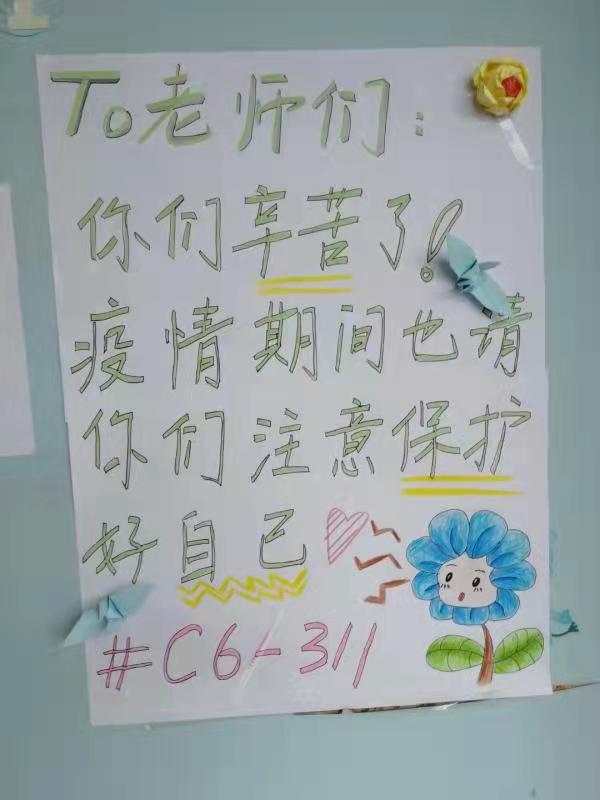 To老师们:
你们辛苦了!
疫情期间也请
你们注意保护
好自己
#C6-311